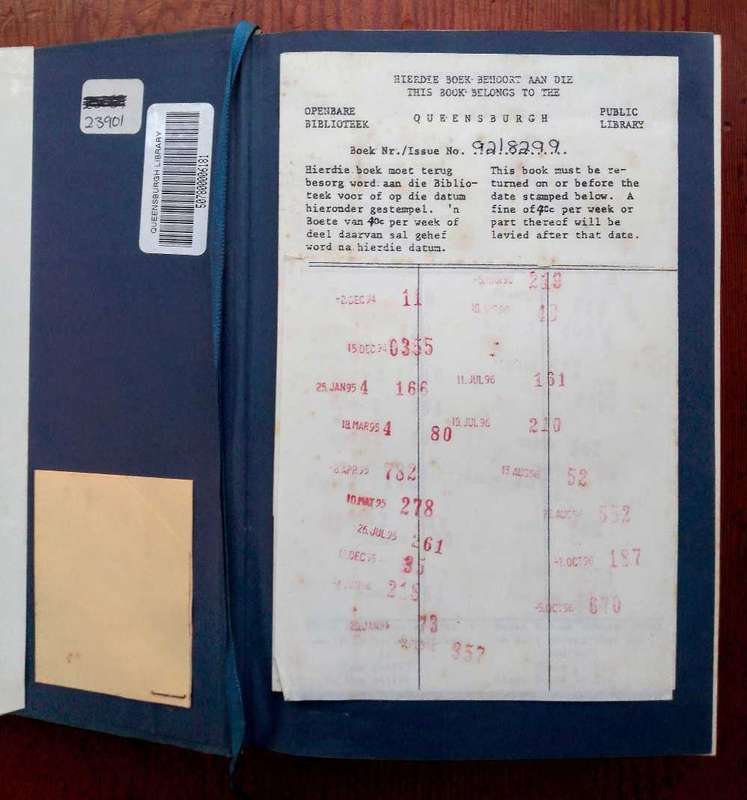 23901
QUEENSBURGH LIBRARY
507800006181
HIERDIE BOEK BEHOORT AAN DIE
THIS BOOK BELONGS TO THE
OPENBARE
BIBLIOTEEK
QUEENSBURGH
PUBLIC
LIBRARY
Boek Nr./Issue No. 9218299
Hierdie boek moet terug
besorg word aan die Biblio-
teek voor of op die datum
hieronder gestempel. 'n
Boete van 40c per week of
deel daarvan sal gehef
word na hierdie datum.
This book must be re-
turned on or before the
date stamped below. A
fine of 40c per week or
part thereof will be
levied after that date.
-2. DEC 94 11
15. DEC 94 0355
25. JAN 95 4 166
18. MAR 95 4 80
APR 95 782
10. MAY 95 278
26. JUL 95 261
DEC 95 35
218
73
357
218
43
11. JUL 96 161
15. JUL 96 210
13. AUG 96 52
AUG 96 532
-2. OCT 96 187
-5. OCT 96 670